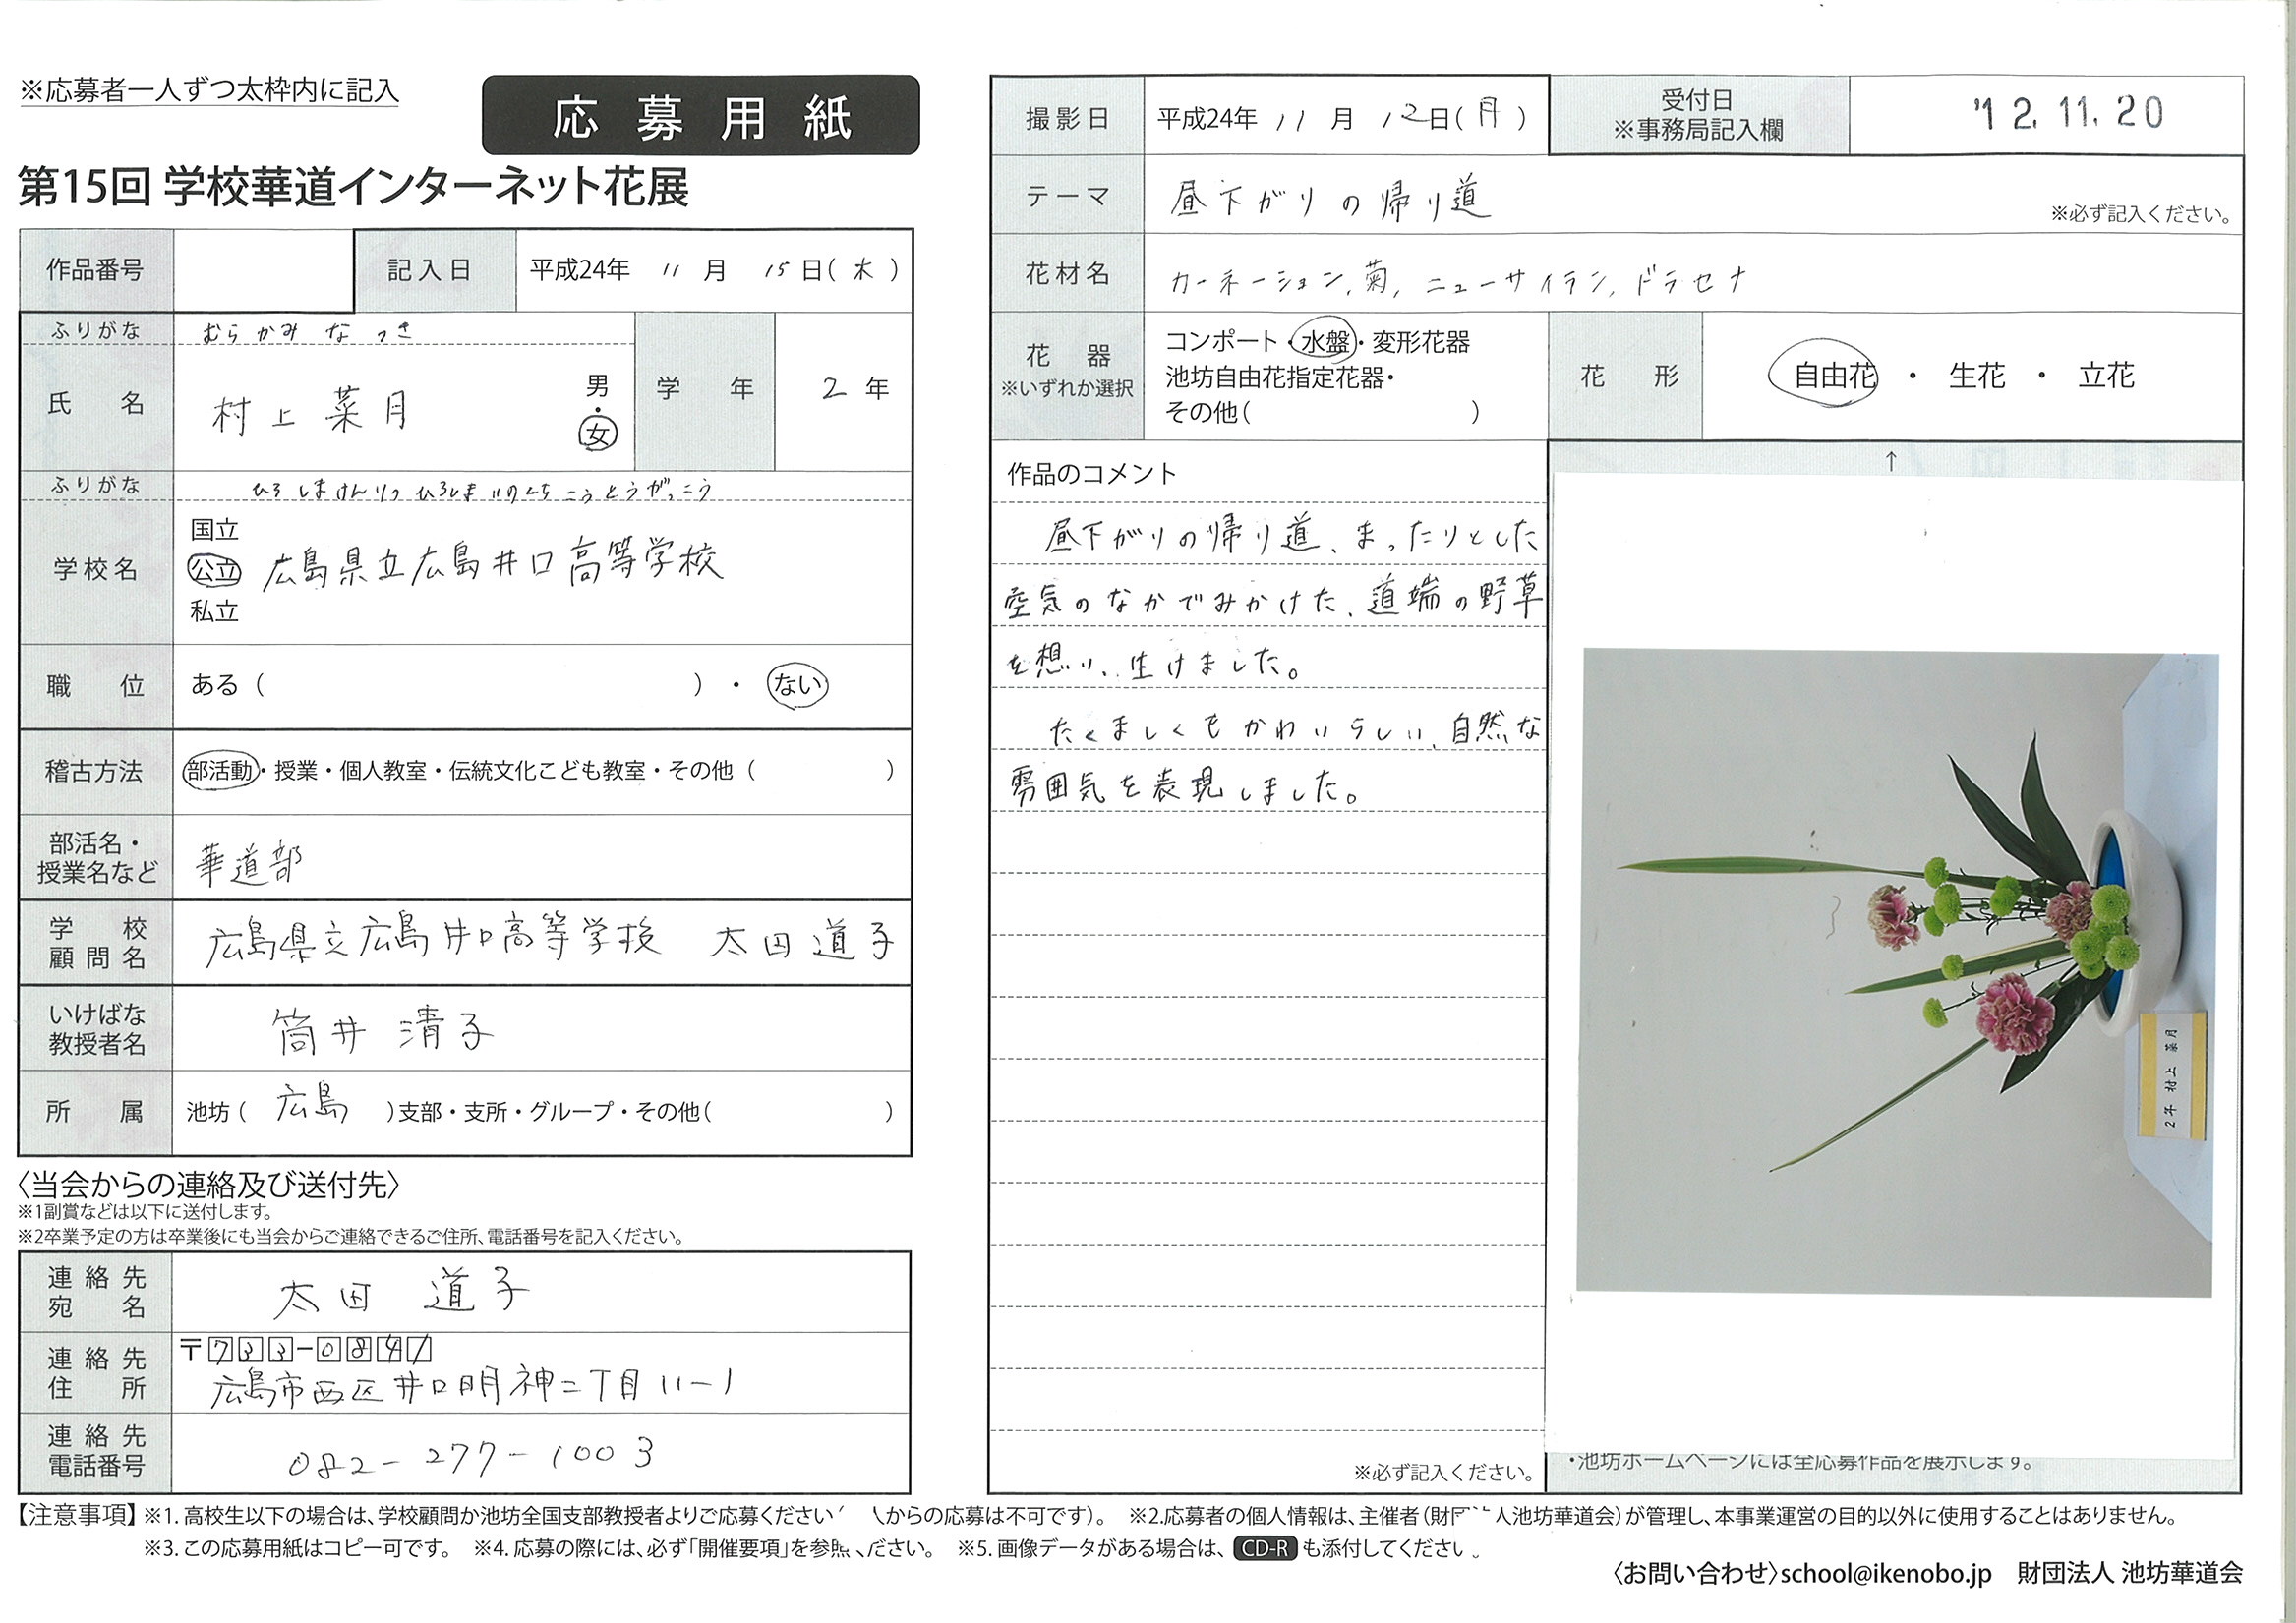 ※応募者一人ずつ太枠内に記入
応募用紙
第15回 学校華道インターネット花展
作品番号
記入日 平成24年 11月 15日(木)
ふりがな むらかみ なつき
氏名 村上菜月 男・女
学年 2年
ふりがな ひろしまけんりつ ひろしまいのくちこうとうがっこう
学校名 国立 公立 私立 広島県立広島井口高等学校
職位 ある( )・ない
稽古方法 部活動・授業・個人教室・伝統文化こども教室・その他( )
部活名・授業名など 華道部
学校顧問名 広島県立広島井口高等学校 太田道子
いけばな教授者名 筒井清子
所属 池坊(広島)支部・支所・グループ・その他( )
〈当会からの連絡及び送付先〉
※1副賞などは以下に送付します。
※2卒業予定の方は卒業後にも当会からご連絡できるご住所、電話番号を記入ください。
連絡先宛名 太田 道子
連絡先住所 〒733-0841
広島市西区井口明神二丁目11-1
連絡先電話番号 082-277-1003
撮影日 平成24年 11月 12日(月)
受付日 ※事務局記入欄 '12.11.20
テーマ 昼下がりの帰り道 ※必ず記入ください。
花材名 カーネーション,菊,ニューサイラン,ドラセナ
花器 ※いずれか選択 コンポート・水盤・変形花器
池坊自由花指定花器・
その他( )
花形 自由花・生花・立花
作品のコメント
昼下がりの帰り道、まったりとした
空気のなかでみかけた、道端の野草
を想い、生けました。
たくましくもかわいらしい、自然な
雰囲気を表現しました。
※必ず記入ください。
↑
2年 村上 菜月
・池坊ホームページには全応募作品を展示します。
【注意事項】※1.高校生以下の場合は、学校顧問か池坊全国支部教授者よりご応募ください 人からの応募は不可です)。 ※2.応募者の個人情報は、主催者(財団 人池坊華道会)が管理し、本事業運営の目的以外に使用することはありません。
※3.この応募用紙はコピー可です。 ※4.応募の際には、必ず「開催要項」を参照 ださい。 ※5.画像データがある場合は、 CD-R も添付してください。
〈お問い合わせ〉school@ikenobo.jp 財団法人 池坊華道会